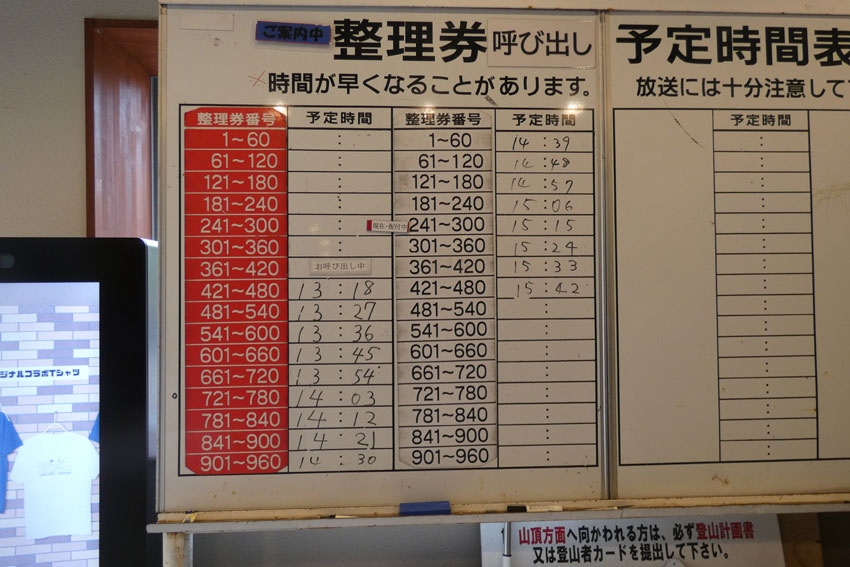 ご案内中 整理券 呼び出し 予定時間表
×時間が早くなることがあります。 放送には十分注意して
整理券番号 予定時間 整理券番号 予定時間 予定時間
1~60 : 1~60 14:39 :
61~120 : 61~120 14:48 :
121~180 : 121~180 14:57 :
181~240 : 181~240 15:06 :
241~300 : 現在・配付中 241~300 15:15 :
301~360 : 301~360 15:24 :
361~420 お呼び出し中 361~420 15:33 :
421~480 13:18 421~480 15:42 :
481~540 13:27 481~540 : :
541~600 13:36 541~600 : :
601~660 13:45 601~660 : :
661~720 13:54 661~720 : :
721~780 14:03 721~780 : :
781~840 14:12 781~840 : :
841~900 14:21 841~900 : :
901~960 14:30 901~960 : :
ジナルコラボTシャツ
山頂方面へ向かわれる方は、必ず登山計画書
又は登山者カードを提出して下さい。